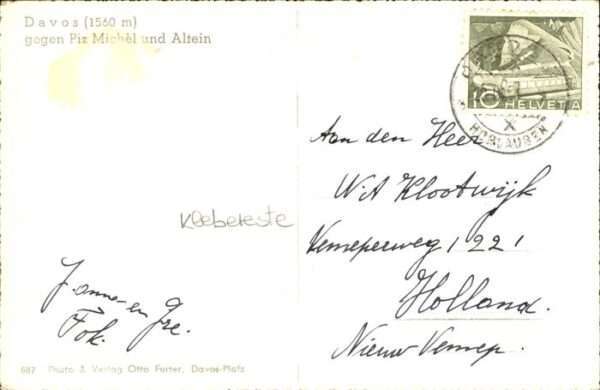 Davos (1560 m)
gegen Piz Michèl und Altein
10 HELVETIA
X
HORLAUBEN
Aan den Heer
W A Klootwijk
Venneperweg 1221
Holland.
Nieuw Vennep.
Klebereste
Janna en Ise.
Fok.
687 Photo & Verlag Otto Furter, Davos-Platz